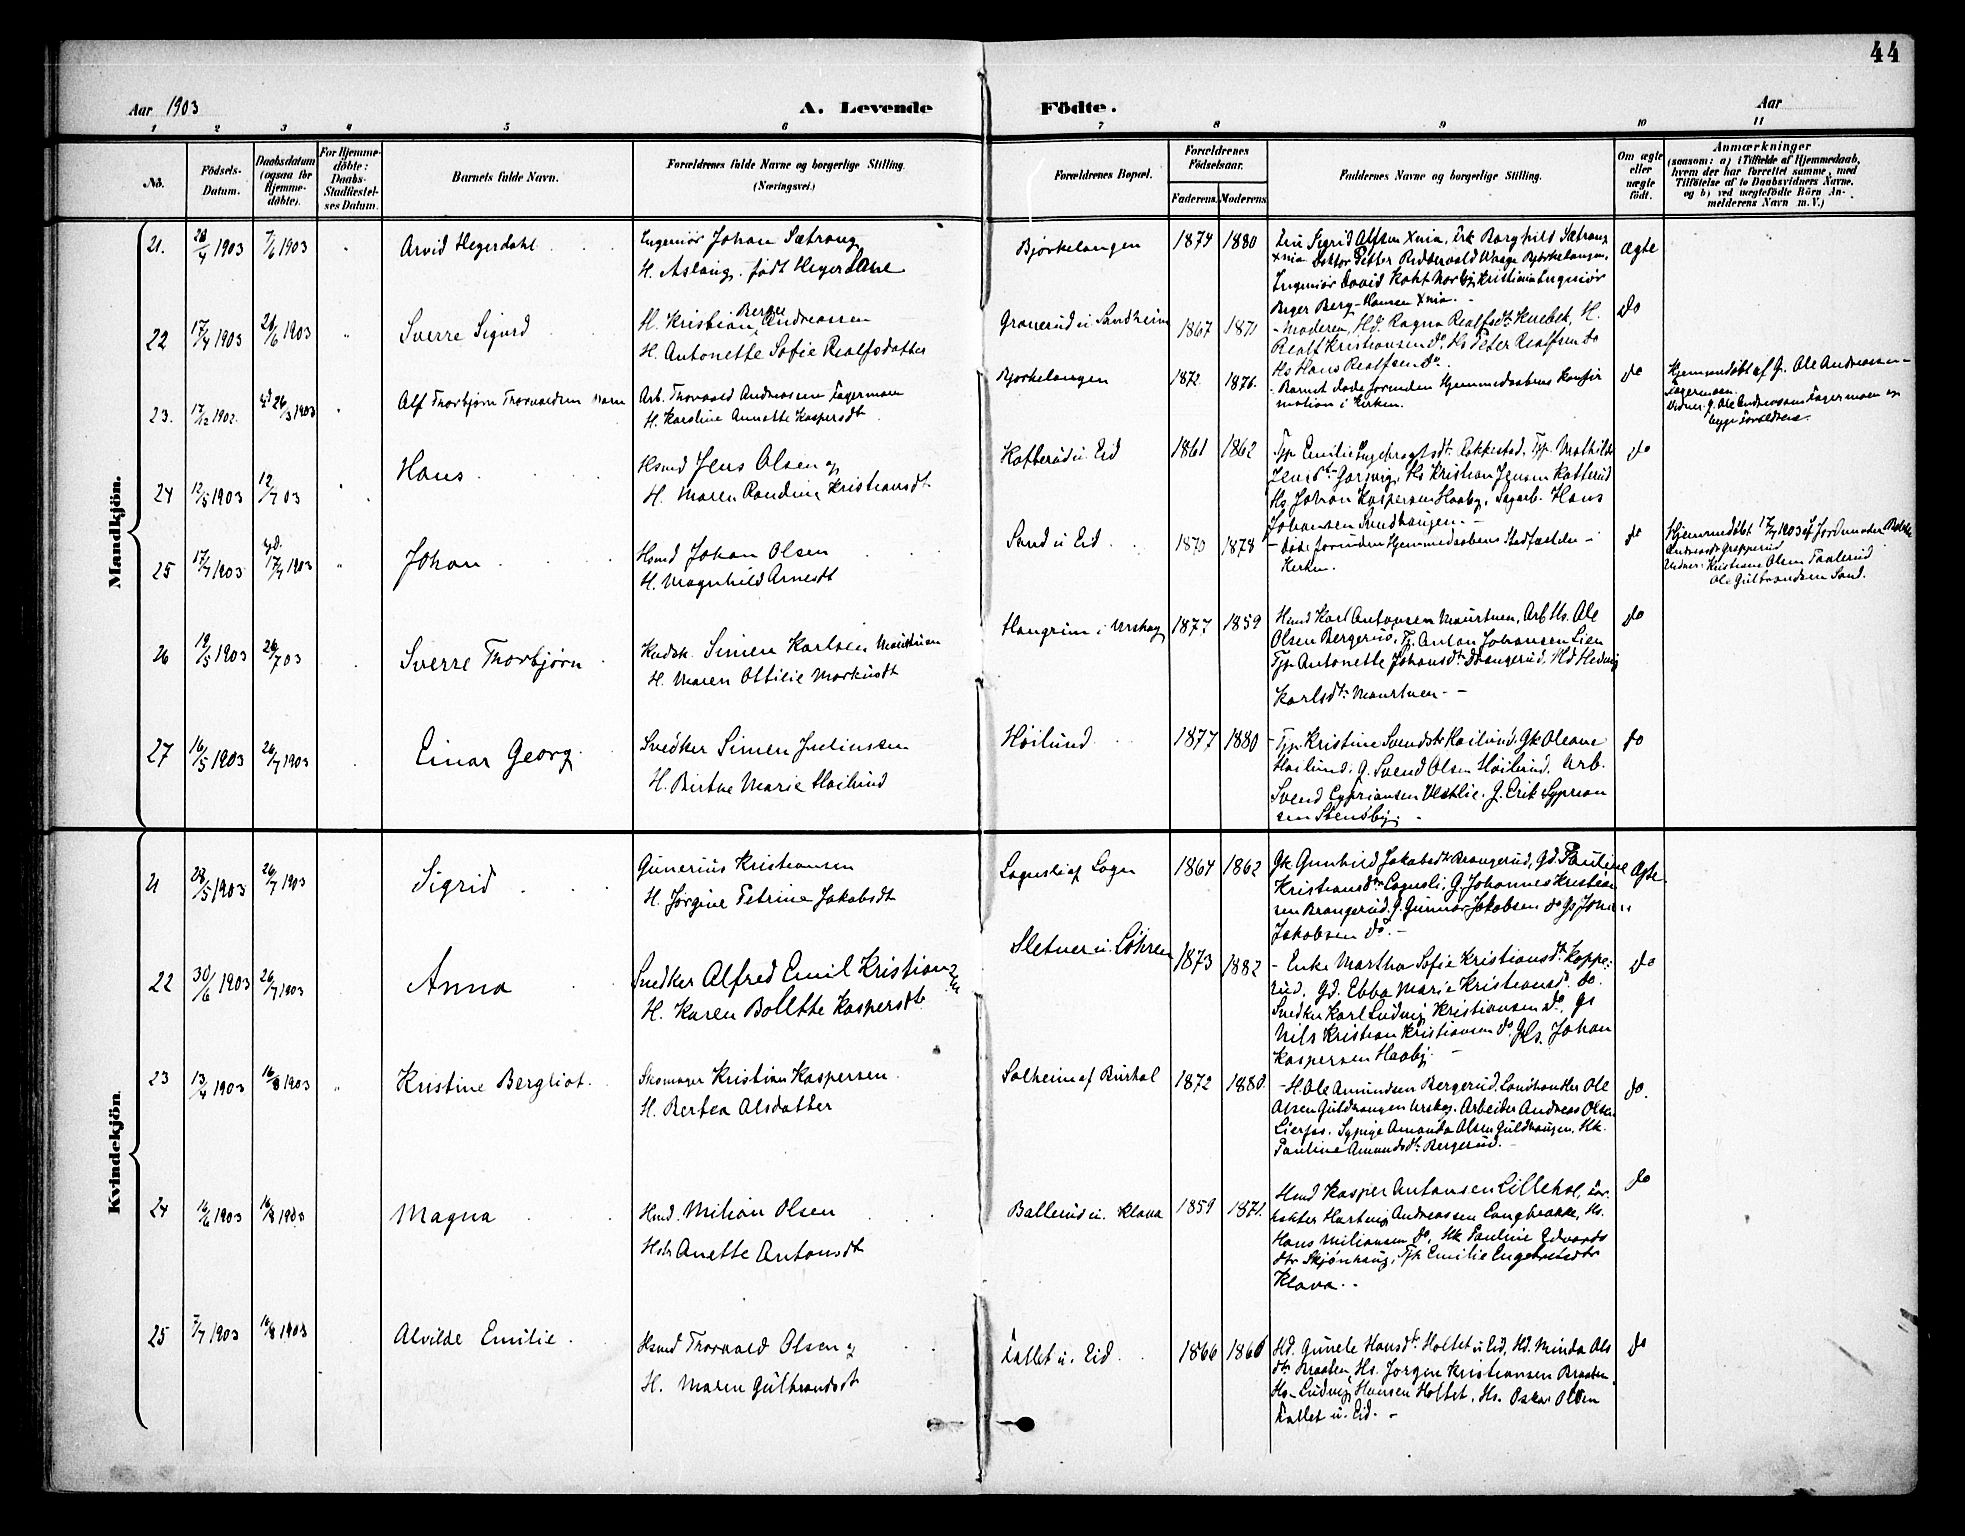 44
Aar 1903 A. Levende Födte. Aar
1 2 3 4 5 6 7 8 9 10 11
No.
Födsels-Datum.
Daabsdatum (ogsaa for Hjemmedöbte).
For Hjemmedöbte: Daabs-Stadfæstelses Datum.
Barnets fulde Navn.
Forældrenes fulde Navne og borgerlige Stilling. (Næringsvei.)
Forældrenes Bopæl.
Forældrenes Födselsaar.
Faderens. Moderens.
Faddernes Navne og borgerlige Stilling.
Om ægte eller uægte födt.
Anmærkninger
(saasom: a) i Tilfælde af Hjemmedaab,
hvem der har forrettet samme, med
Tilföielse af to Daabsvidners Navne,
og b) ved uægtefödte Börn An-
melderens Navn m. V.)
Mandkjön.
21. 28/4 1903 7/6 1903 " Arvid Hegerdahl
Ingeniør Johan Sætrang
H. Aslaug født Hegerdahl
Bjørkelangen 1874 1880
Fru Sigrid Olsen Xnia, Frk Borghild Sætrang
Xnia Doktor Petter Riddervold Waage Bjørkelangen,
Ingeniør David Kaht Norby Kristiania Ingeniør
Birger Berg-Hansen Xnia.
ægte
22 17/4 1903 21/6 1903 " Sverre Sigurd
Berger
H. Kristian Andreassen
H. Antonette Sofie Realfsdatter
Granerud u Sandheim 1867 1871
- Moderen, Hd. Ragna Realfsdt Knebek, H.
Realf Kristiansen do, Hs Peter Realfsen do
Hs Hans Realfsen do
do
23. 17/12 1902. 26/3 1903 " Alf Thorbjørn Thorvaldsen Barn
Arb. Thorvald Andreassen Fagermoen
H. Karoline Annette Kaspersdt
Bjørkelangen 1872 1876.
- Barnet døde forinden Hjemmedaabens Konfir
mation i Kirken.
do
Hjemmedøbt af G. Ole Andreassen
Fagermoen
Vidner: G. Ole Andreassen Fagermoen og
begge Forældrene.
24 12/5 1903 12/7 03 " Hans
Hsmd Jens Olsen og
H. Maren Randine Kristiansdt
Katterud u. Eid 1861 1862
Tjp. Emilie Engebregtsdt Rakkestad, Tjp. Mathilde
Jensdt Garsvig, Hs Kristian Jensen Katterud
Hs Johan Kaspersen Haaby, Sagarb. Hans
Johansen Svendhaugen. -
do
25 17/7 1903 17/7 1903 " Johan
Hsmd Johan Olsen
H. Magnhild Arnesdt
Sand u Eid 1870 1878
- døde forinden Hjemmedaabens Stadfæstelse i
Kirken.
do
Hjemmedøbt 17/7 1903 af Jordmoder
Vidner: Kristiane Olsen Faalerud
Ole Gulbrandsen Sand.
26 19/5 1903 26/7 03 Sverre Thorbjørn
Simen Karlsen Maurtuen
H. Maren Ottilie Markusdt
Hangrim i Urskog 1877 1859
Hsmd Karl Antonsen Maurtuen, Arb Hs. Ole
Olsen Bergerud, Tj. Anton Johansen Lien
Tjp. Antonette Johansdt Drangerud, Hd Hedvig
Karlsdt Maurtuen. -
do
27 16/5 1903 26/7 1903 Einar Georg
Snedker Simen Juliussen
H. Birthe Marie Høilund
Høilund 1877 1880
- Tjp. Kristine Svendsdtr Høilund, Gk Oleane
Høilund, G. Svend Olsen Høilund, Arb.
Svend Cyprianssen Vestlie, G. Erik Syprian
sen Svendsby. -
do
Kvindekjön.
21 28/5 1903 26/7 1903 Sigrid
Gunerius Kristiansen
H. Jørgine Petrine Jakobsdt
Lognsli af Logn 1864 1862
Gk. Gunhild Jakobsdt Brangerud, Gd. Pauline
Kristiansdtr Lognsli, G. Johannes Kristian
sen Brangerud, G. Gunnar Jakobsen do Gs Johan
Jakobsen do. -
Ægte
22 30/6 1903 26/7 1903 Anna
Snedker Alfred Emil Kristiansen
H. Karen Bolette Kaspersdt
Sletner u. Løhren 1873 1882
- Enke Martha Sofie Kristiansdt Koppe-
rud, Gd. Ebba Marie Kristiansdt. do.
Snedker Karl Ludvig Kristiansen do, Gs
Nils Kristian Kristiansen do, Gs. Johan
Kaspersen Haaby. -
do
23 13/4 1903 16/8 1903 " Kristine Bergliot.
Skomager Kristian Kaspersen
H. Bertea Olsdatter
Solheim af Burhol 1872 1880.
- H. Ole Amundsen Bergerud, Landhandler Ole
Olsen Guldhaugen Urskog. Arbeider Andreas Olsen
Lierfos. Sypige Amanda Olsen Guldhaugen, Hk.
Pauline Amundsdt Bergerud. -
do.
24 16/6 1903 16/8 1903 Magna
Hsmd. Milian Olsen
Hstr Anette Antonsdt
Ballerud u. Klava 1859 1871.
Hsmd Kasper Antonsen Lillehol, For-
valter Hartvig Andreassen Langbakke, Hs.
Hans Miliansen do, Hk Pauline Edvards
dtr Skjønhaug, Tjp Emilie Engebretsdtr
Klava. -
do
25 7/7 1903 16/8 1903 Alvilde Emilie
Hsmd Thorvald Olsen og
H. Maren Gulbrandsdt
Fallet u. Eid 1866 1860
Hd. Gunele Hansdt Holtet u Eid, Hd. Minda Ols
dtr Braaten, Hs. Jørgen Kristiansen Braaten
Hs. Ludvig Hansen Holtet, Hs. Oskar Olsen
Fallet u. Eid. -
do